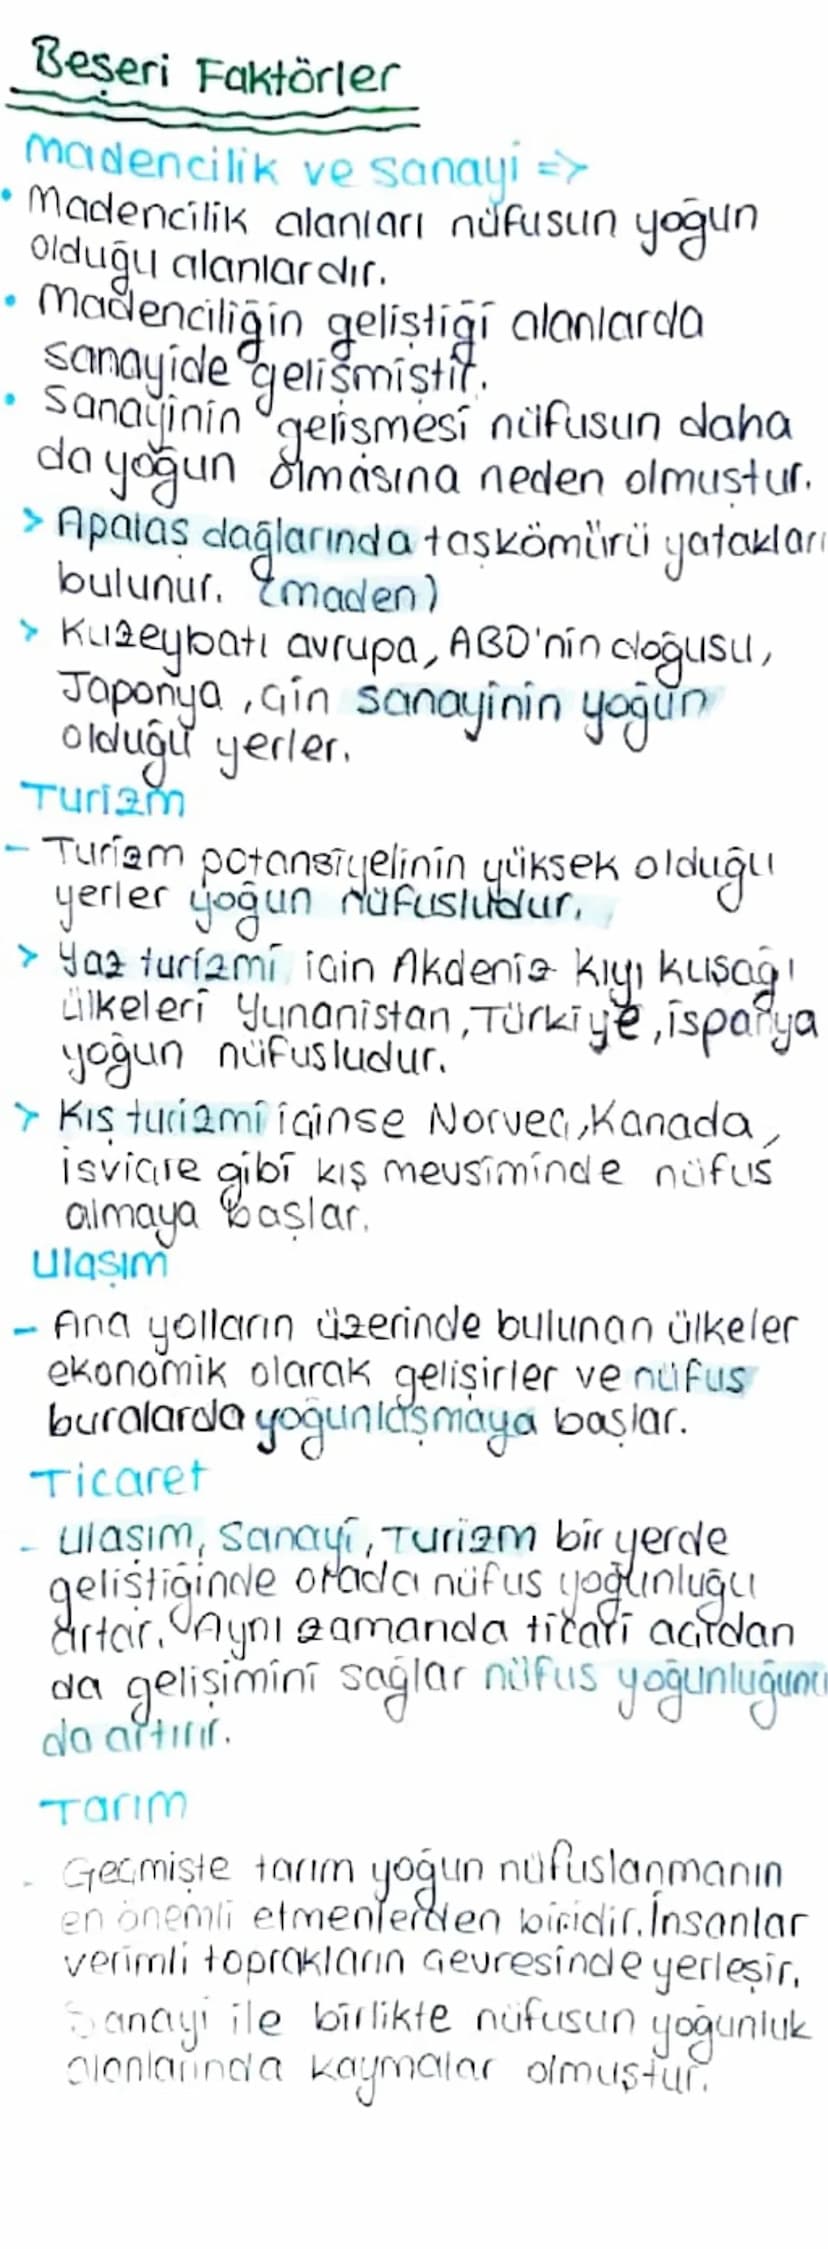 Beşeri Faktörler
madencilik ve sanayi =>
• Madencilik alanları nüfusun yoğun
olduğu alanlardır.
• Madenciliğin geliştiği alanlarda
sanayide gelişmiştir.
• Sanayinin gelişmesi nüfusun daha
da yoğun olmasına neden olmuştur.
> Apalaş dağlarında taşkömürü yatakları
bulunur. (maden)
> Kuzeybatı avrupa, ABD'nin doğusu,
Japonya, çin sanayinin yoğun
olduğu yerler.
Turizm
- Turizm potansiyelinin yüksek olduğu
yerler yoğun nüfusludur.
> Yaz turizmi için Akdeniz kıyı kuşağı
ülkeleri Yunanistan, Türkiye, ispanya
yoğun nüfusludur.
> Kış turizmi içinse Norveç, Kanada,
isviçre gibi kış mevsiminde nüfus
almaya başlar.
Ulaşım
- Ana yolların üzerinde bulunan ülkeler
ekonomik olarak gelişirler ve nüfus
buralarda yoğunlaşmaya başlar.
Ticaret
- Ulaşım, Sanayi, Turizm bir yerde
geliştiğinde orada nüfus yoğunluğu
artar. Aynı zamanda ticari açıdan
da gelişimini sağlar nüfus yoğunluğunu
da artırır.
Tarım
- Geçmişte tarım yoğun nüfuslanmanın
en önemli etmenlerden biridir. İnsanlar
verimli toprakların çevresinde yerleşir.
Sanayi ile birlikte nüfusun yoğunluk
alanlarında kaymalar olmuştur.